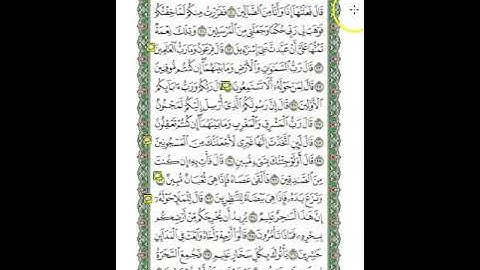 قَالَ فَعَلْتُهَآ إِذًا وَأَنَا۠ مِنَ ٱلضَّآلِّينَ ۝٢٠ فَفَرَرْتُ مِنكُمْ لَمَّا خِفْتُكُمْ
فَوَهَبَ لِى رَبِّى حُكْمًا وَجَعَلَنِى مِنَ ٱلْمُرْسَلِينَ ۝٢١ وَتِلْكَ نِعْمَةٌ
تَمُنُّهَا عَلَىَّ أَنْ عَبَّدتَّ بَنِىٓ إِسْرَٰٓءِيلَ ۝٢٢ قَالَ فِرْعَوْنُ وَمَا رَبُّ ٱلْعَٰلَمِينَ
۝٢٣ قَالَ رَبُّ ٱلسَّمَٰوَٰتِ وَٱلْأَرْضِ وَمَا بَيْنَهُمَآ إِن كُنتُم مُّوقِنِينَ
۝٢٤ قَالَ لِمَنْ حَوْلَهُۥٓ أَلَا تَسْتَمِعُونَ ۝٢٥ قَالَ رَبُّكُمْ وَرَبُّ ءَابَآئِكُمُ
ٱلْأَوَّلِينَ ۝٢٦ قَالَ إِنَّ رَسُولَكُمُ ٱلَّذِىٓ أُرْسِلَ إِلَيْكُمْ لَمَجْنُونٌ
۝٢٧ قَالَ رَبُّ ٱلْمَشْرِقِ وَٱلْمَغْرِبِ وَمَا بَيْنَهُمَآ إِن كُنتُمْ تَعْقِلُونَ
۝٢٨ قَالَ لَئِنِ ٱتَّخَذْتَ إِلَٰهًا غَيْرِى لَأَجْعَلَنَّكَ مِنَ ٱلْمَسْجُونِينَ
۝٢٩ قَالَ أَوَلَوْ جِئْتُكَ بِشَىْءٍ مُّبِينٍ ۝٣٠ قَالَ فَأْتِ بِهِۦٓ إِن كُنتَ
مِنَ ٱلصَّٰدِقِينَ ۝٣١ فَأَلْقَىٰ عَصَاهُ فَإِذَا هِىَ ثُعْبَانٌ مُّبِينٌ ۝٣٢
وَنَزَعَ يَدَهُۥ فَإِذَا هِىَ بَيْضَآءُ لِلنَّٰظِرِينَ ۝٣٣ قَالَ لِلْمَلَإِ حَوْلَهُۥٓ
إِنَّ هَٰذَا لَسَٰحِرٌ عَلِيمٌ ۝٣٤ يُرِيدُ أَن يُخْرِجَكُم مِّنْ أَرْضِكُم
بِسِحْرِهِۦ فَمَاذَا تَأْمُرُونَ ۝٣٥ قَالُوٓا۟ أَرْجِهْ وَأَخَاهُ وَٱبْعَثْ فِى ٱلْمَدَآئِنِ
حَٰشِرِينَ ۝٣٦ يَأْتُوكَ بِكُلِّ سَحَّارٍ عَلِيمٍ ۝٣٧ فَجُمِعَ ٱلسَّحَرَةُ